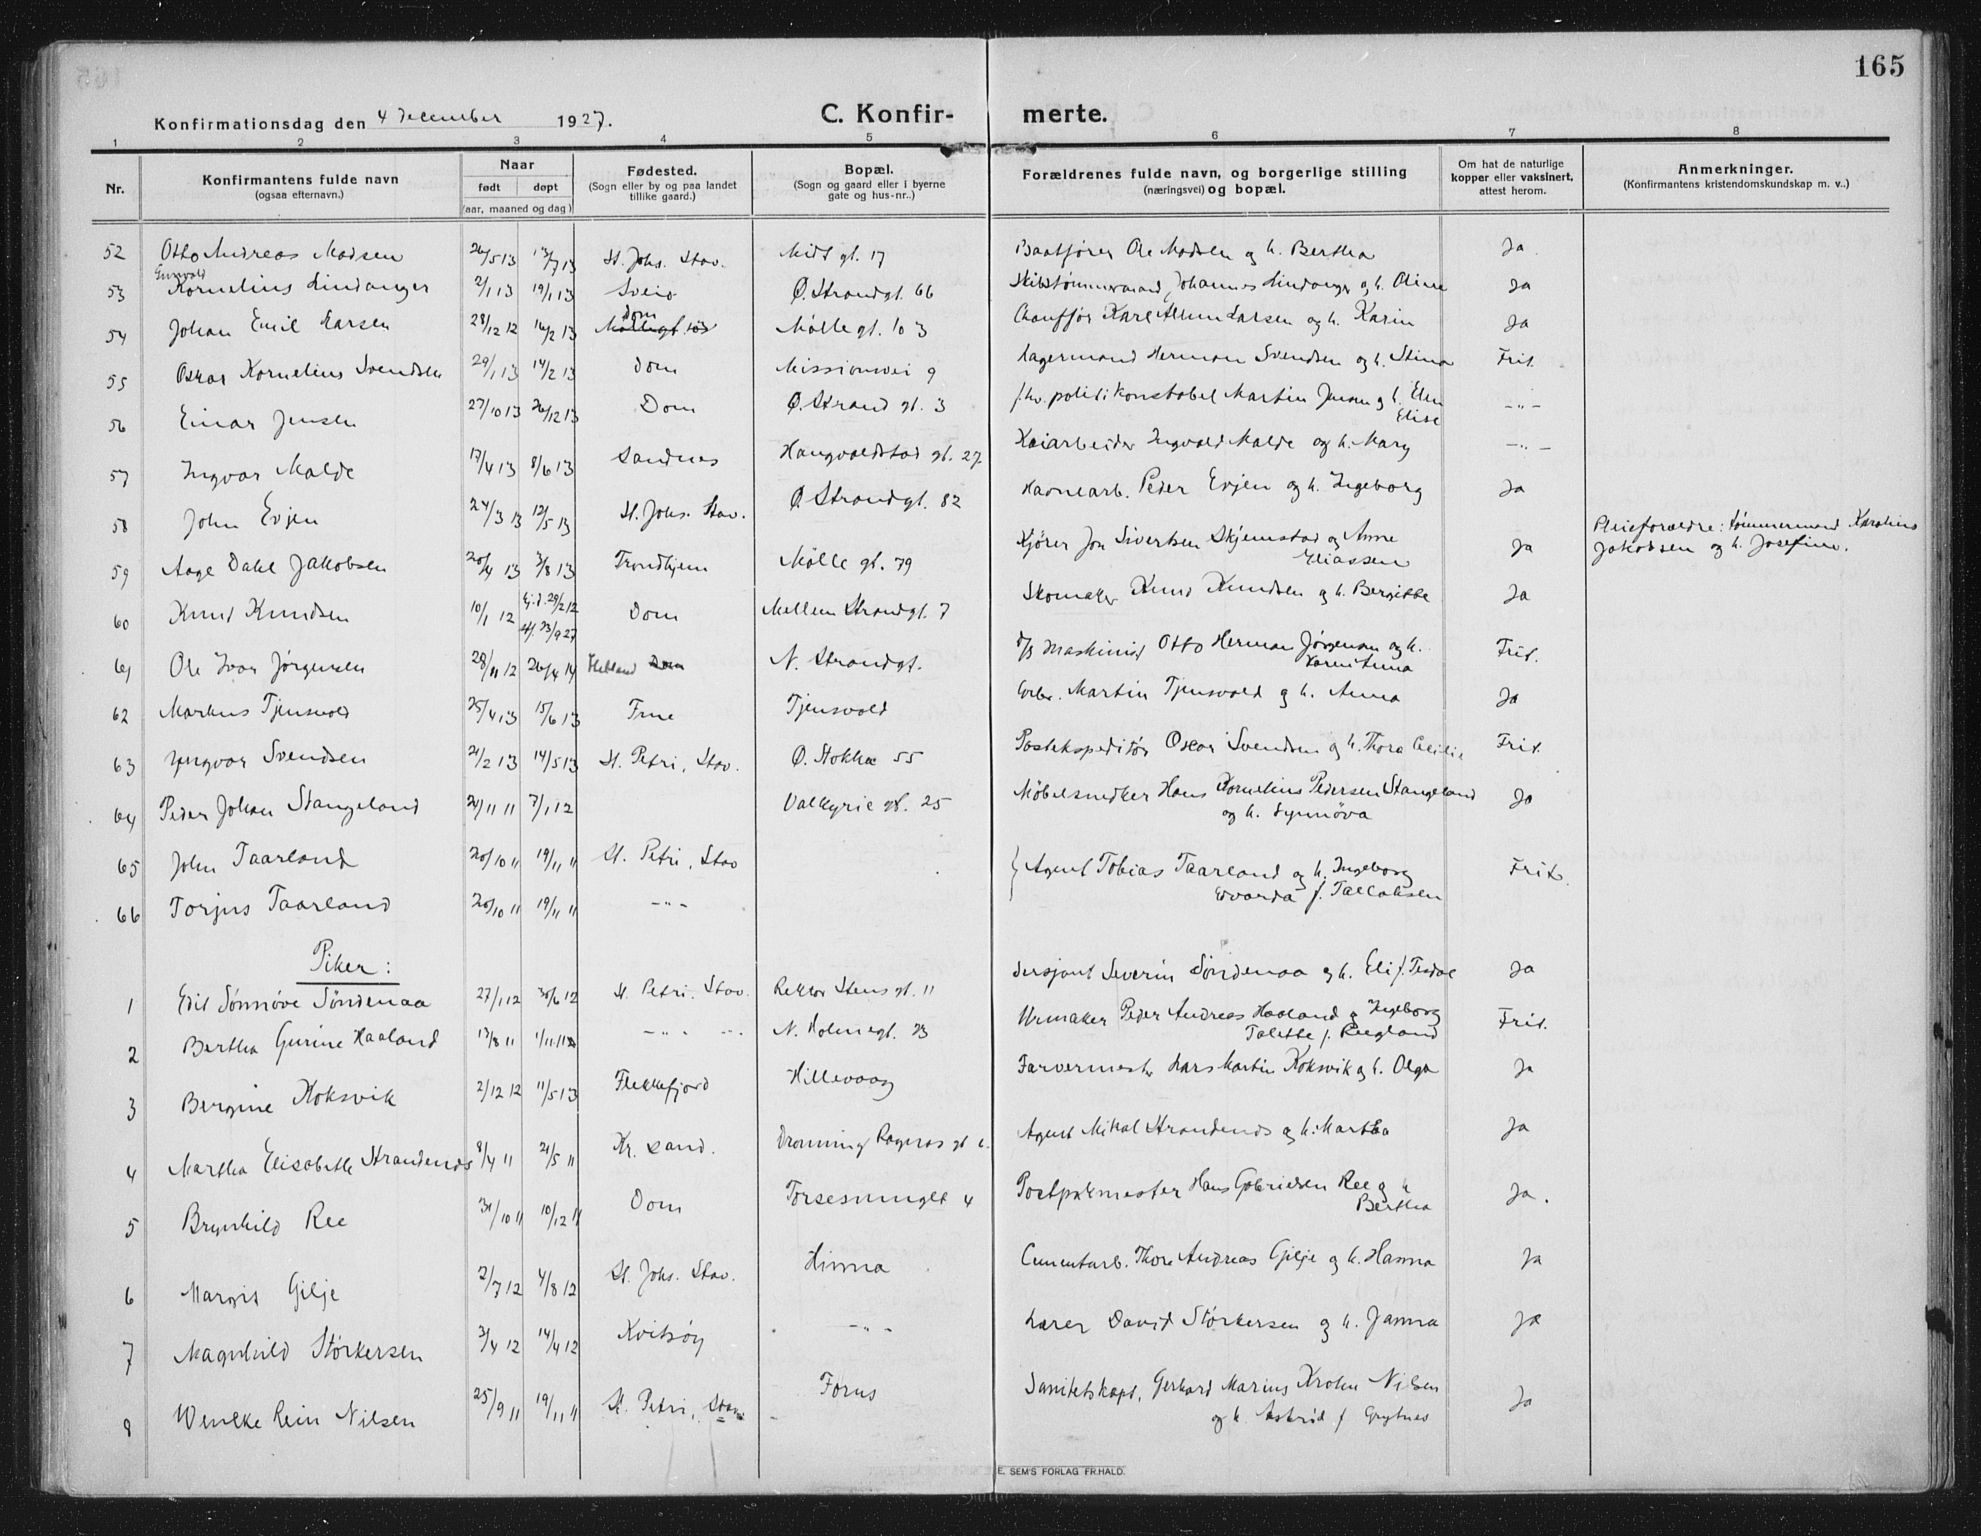 165
Konfirmationsdag den 4 december 1927.
C. Konfir- merte.
1 2 3 4 5 6 7 8
Nr. Konfirmantens fulde navn (ogsaa efternavn.) Naar født døpt (aar, maaned og dag) Fødested. (Sogn eller by og paa landet tillike gaard.) Bopæl. (Sogn og gaard eller i byerne gate og hus-nr..) Forældrenes fulde navn, og borgerlige stilling (næringsvei) og bopæl. Om hat de naturlige kopper eller vaksinert, attest herom. Anmerkninger. (Konfirmantens kristendomskundskap m. v..)
52 Otto Andreas Madsen 26/5 13 13/7 13 St. Johs. Stav. Midt gt. 17 Baatfører Ole Madsen og h. Bertha Ja
53 Gunvald Kornelius Lindanger 2/1 13 19/1 13 Sveio Ø. Strandgt. 66 Skibstømmermand Johannes Lindanger og h. Oline Ja
54 Johan Emil Larsen 28/12 12 16/2 13 Møllegt. 103 Dom Mølle gt. 103 Chauffør Karl Larsen og h. Karin Ja
55 Oskar Kornelius Svendsen 29/1 13 14/2 13 Dom Missionsvei 9 Lagermand Herman Svendsen og h. Stina Frit.
56 Einar Jensen 27/10 13 26/12 13 Dom Ø. Strand gt. 3 fhv. politikonstabel Martin Jensen og h. Elen Elise -"-
57 Ingvar Malde 17/4 13 8/6 13 Sandnes Haugvaldstad gt. 27 Kaiarbeider Ingvald Malde og h. Mary -"-
58 John Evjen 24/3 13 12/5 13 St. Johs. Stav. Ø. Strandgt. 82 Havnearb. Peder Evjen og h. Ingeborg Ja
59 Aage Dahl Jakobsen 20/4 13 3/8 13 Trondhjem Mølle gt. 79 Kjører Jon Sivertsen Skjemstad og Anne Eliassen Ja Pleieforældre: tømmermand Karolius Jakobsen og h. Josefine.
60 Knut Knudsen 10/1 12 Hj. d. 29/2 12 st. 23/9 27 Dom Mellem Strandgt. 7 Skomaker Knut Knudsen og h. Bergitte Ja
61 Ole Ivar Jørgensen 28/11 12 26/4 14 Hetland Dom N. Strandgt. d/s Maskinist Otto Herman Jørgensen og h. Karen Anna Frit.
62 Markus Tjensvold 25/4 13 15/6 13 Frue Tjensvold Grbr. Martin Tjensvold og h. Anna Ja
63 Yngvar Svendsen 21/2 13 14/5 13 St. Petri, Stav. Ø. Stokka 55 Postekspeditør Oscar Svendsen og h. Thora Cecilie Frit.
64 Peder Johan Stangeland 20/11 11 7/1 12 Valkyrie gt. 25 Møbelsnedker Hans Kornelius Pedersen Stangeland og h. Synnøva Ja
65 John Taarland 20/10 11 19/11 11 St. Petri, Stav } Agent Tobias Taarland og h. Ingeborg Edvarda f. Tallaksen Frit.
66 Torjus Taarland 20/10 11 19/11 11 -"-
Piker:
1 Edit Sønnøve Söndenaa 27/1 12 30/6 12 St. Petri. Stav. Rektor Stens gt. 11 Sersjant Severin Söndenaa og h. Eli f. Tesdal Ja
2 Bertha Gurine Haaland 13/8 11 1/11 11 -"- -"- N. Holmegt. 23 Urmaker Peder Andreas Haaland og Ingeborg Talette f. Reegland Frit.
3 Bergine Koksvik 2/12 12 11/5 13 Flekkefjord Hillevaag Farvermester Lars Martin Koksvik og h. Olga Ja
4 Martha Elisabeth Strandenæs 8/4 11 21/5 11 Kr. Sand. Dronning Ragnas gt 6. Agent Mikal Strandenæs og h. Martha Ja
5 Brynhild Ree 31/10 11 10/12 11 Dom Torsesmuget 4 Postpakmester Hans Gabrielsen Ree og h Bertha Ja.
6 Margit Gilje 2/7 12 4/8 12 St. Johs. Stav. Hinna Cementarb. Thore Andreas Gilje og h. Hanna Ja
7 Magnhild Størkersen 3/4 12 14/4 12 Kvitsøy -"- Lærer David Størkersen og h. Janna Ja
8 Wencke Rein Nilsen 25/9 11 19/11 11 St. Petri, Stav. Forus Sanitetskapt. Gerhard Marius Krohn Nilsen og h. Astrid f Grytnes Ja
E. SEM'S FORLAG FR.HALD.